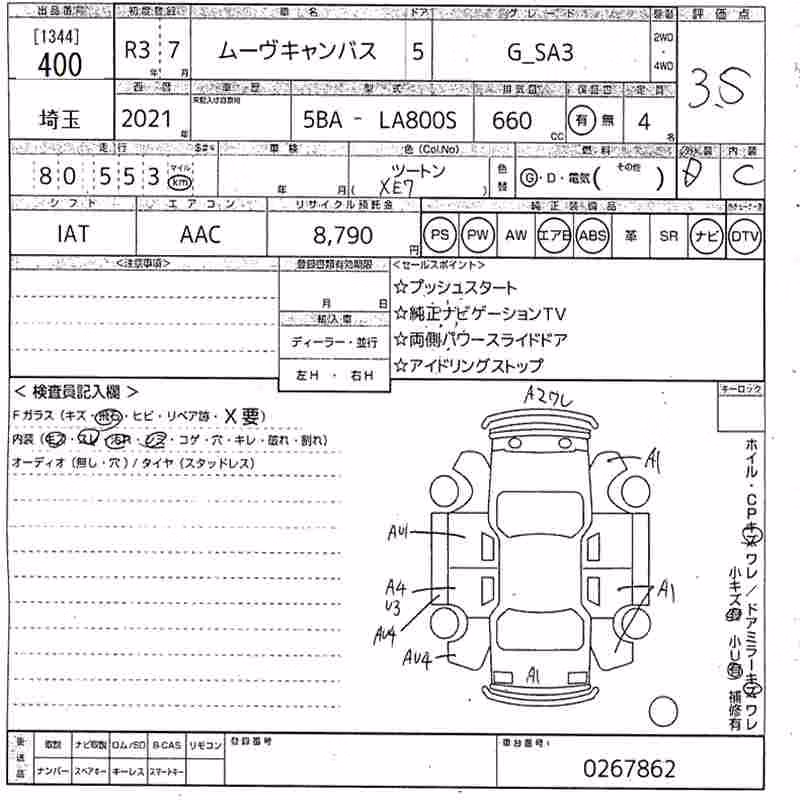 出品番号 初度登録 車名 ドア グレード 駆動 評価点
[1344]
400
R3 7 年 月
ムーヴキャンバス
5
G_SA3
2WD・4WD
3.5
西暦 車歴 型式 排気量 保証書 定員
埼玉
2021 年
5BA - LA800S
660 CC
有 無
4 名
走行 車検 色(Col.No) 燃料 外装 内装
80,553 マイル km
年 月
ツートン
(XE7)
色替
G・D・電気( その他 )
C
シフト エアコン リサイクル預託金 純正装備品
IAT
AAC
8,790 円
PS PW AW エアB ABS 革 SR ナビ DTV
<注意事項> 登録書類有効期限 <セールスポイント>
月 日
輸入車
ディーラー・並行
左H ・ 右H
☆プッシュスタート
☆純正ナビゲーションTV
☆両側パワースライドドア
☆アイドリングストップ
< 検査員記入欄 >
Fガラス (キズ・飛石・ヒビ・リペア跡・X要)
内装 (キズ・スレ・汚れ・シミ・コゲ・穴・キレ・破れ・割れ)
オーディオ (無し・穴) / タイヤ (スタッドレス)
キーロック
A2ワレ
A1
AU1
A4
U3
AU4
AU4
A1
A1
ホイル・CPキズ ワレ / ドアミラーキズ ワレ
小キズ有 小U有 補修有
後送品
取説 ナビ取説 ロム/SD B-CAS リモコン
ナンバー スペアキー キーレス スマートキー
登録番号
車台番号:
0267862